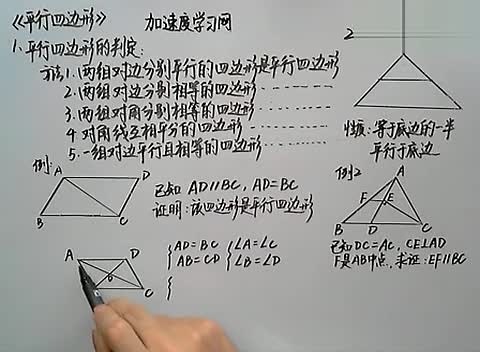 《平行四边形》 加速度学习网
1、平行四边形的判定:
方法1.两组对边分别平行的四边形是平行四边形
2.两组对边分别相等的四边形
3.两组对角分别相等的四边形
4 对角线互相平分的四边形
5.一组对边平行且相等的四边形
2
性质:等于底边的一半
平行于底边
例:
A D
B C
已知 AD∥BC, AD=BC
证明:该四边形是平行四边形
例2
A
F E
B D C
已知DC=AC, CE⊥AD
F是AB中点, 求证:EF∥BC
A D
O
C
AD=BC
AB=CD
∠A=∠C
∠B=∠D